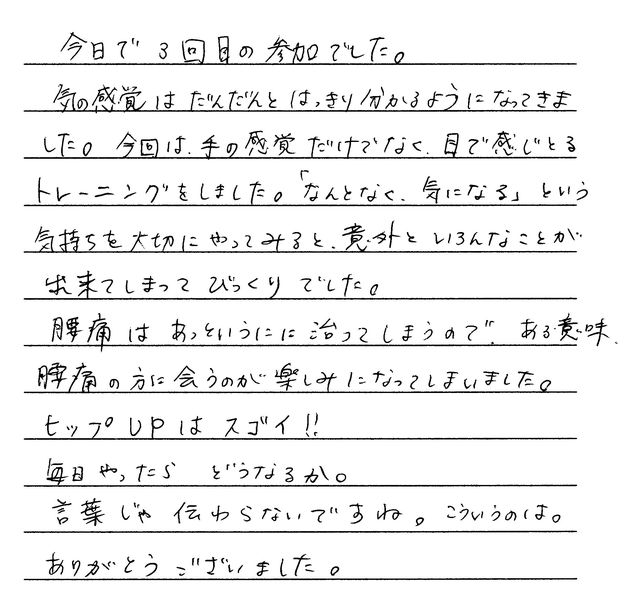 今日で3回目の参加でした。
気の感覚はだんだんとはっきり分かるようになってきま
した。今回は、手の感覚だけでなく、目で感じとる
トレーニングをしました。「なんとなく、気になる」という
気持ちを大切にやってみると、意外といろんなことが
出来てしまってびっくりでした。
腰痛はあっというにに治ってしまうので、ある意味、
腰痛の方に会うのが楽しみになってしまいました。
ヒップUPはスゴイ!!
毎日やったらどうなるか。
言葉じゃ伝わらないですね。こういうのは。
ありがとうございました。